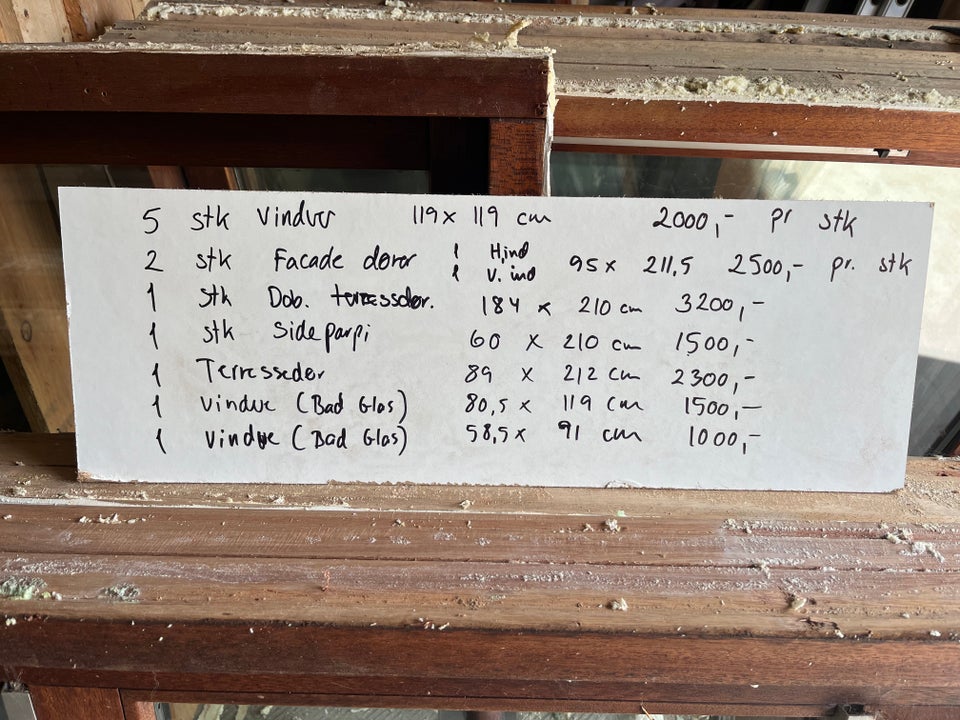 5 stk vinduer 119 x 119 cm 2000,- pr stk
2 stk Facade dører 1 H,ind 1 V. ind 95 x 211,5 2500,- pr. stk
1 stk Dob. terrassedør. 184 x 210 cm 3200,-
1 stk Sideparpi 60 x 210 cm 1500,-
1 Terrassedør 89 x 212 cm 2300,-
1 vindue (Bad Glas) 80,5 x 119 cm 1500,-
1 vindue (Bad Glas) 58,5 x 91 cm 1000,-